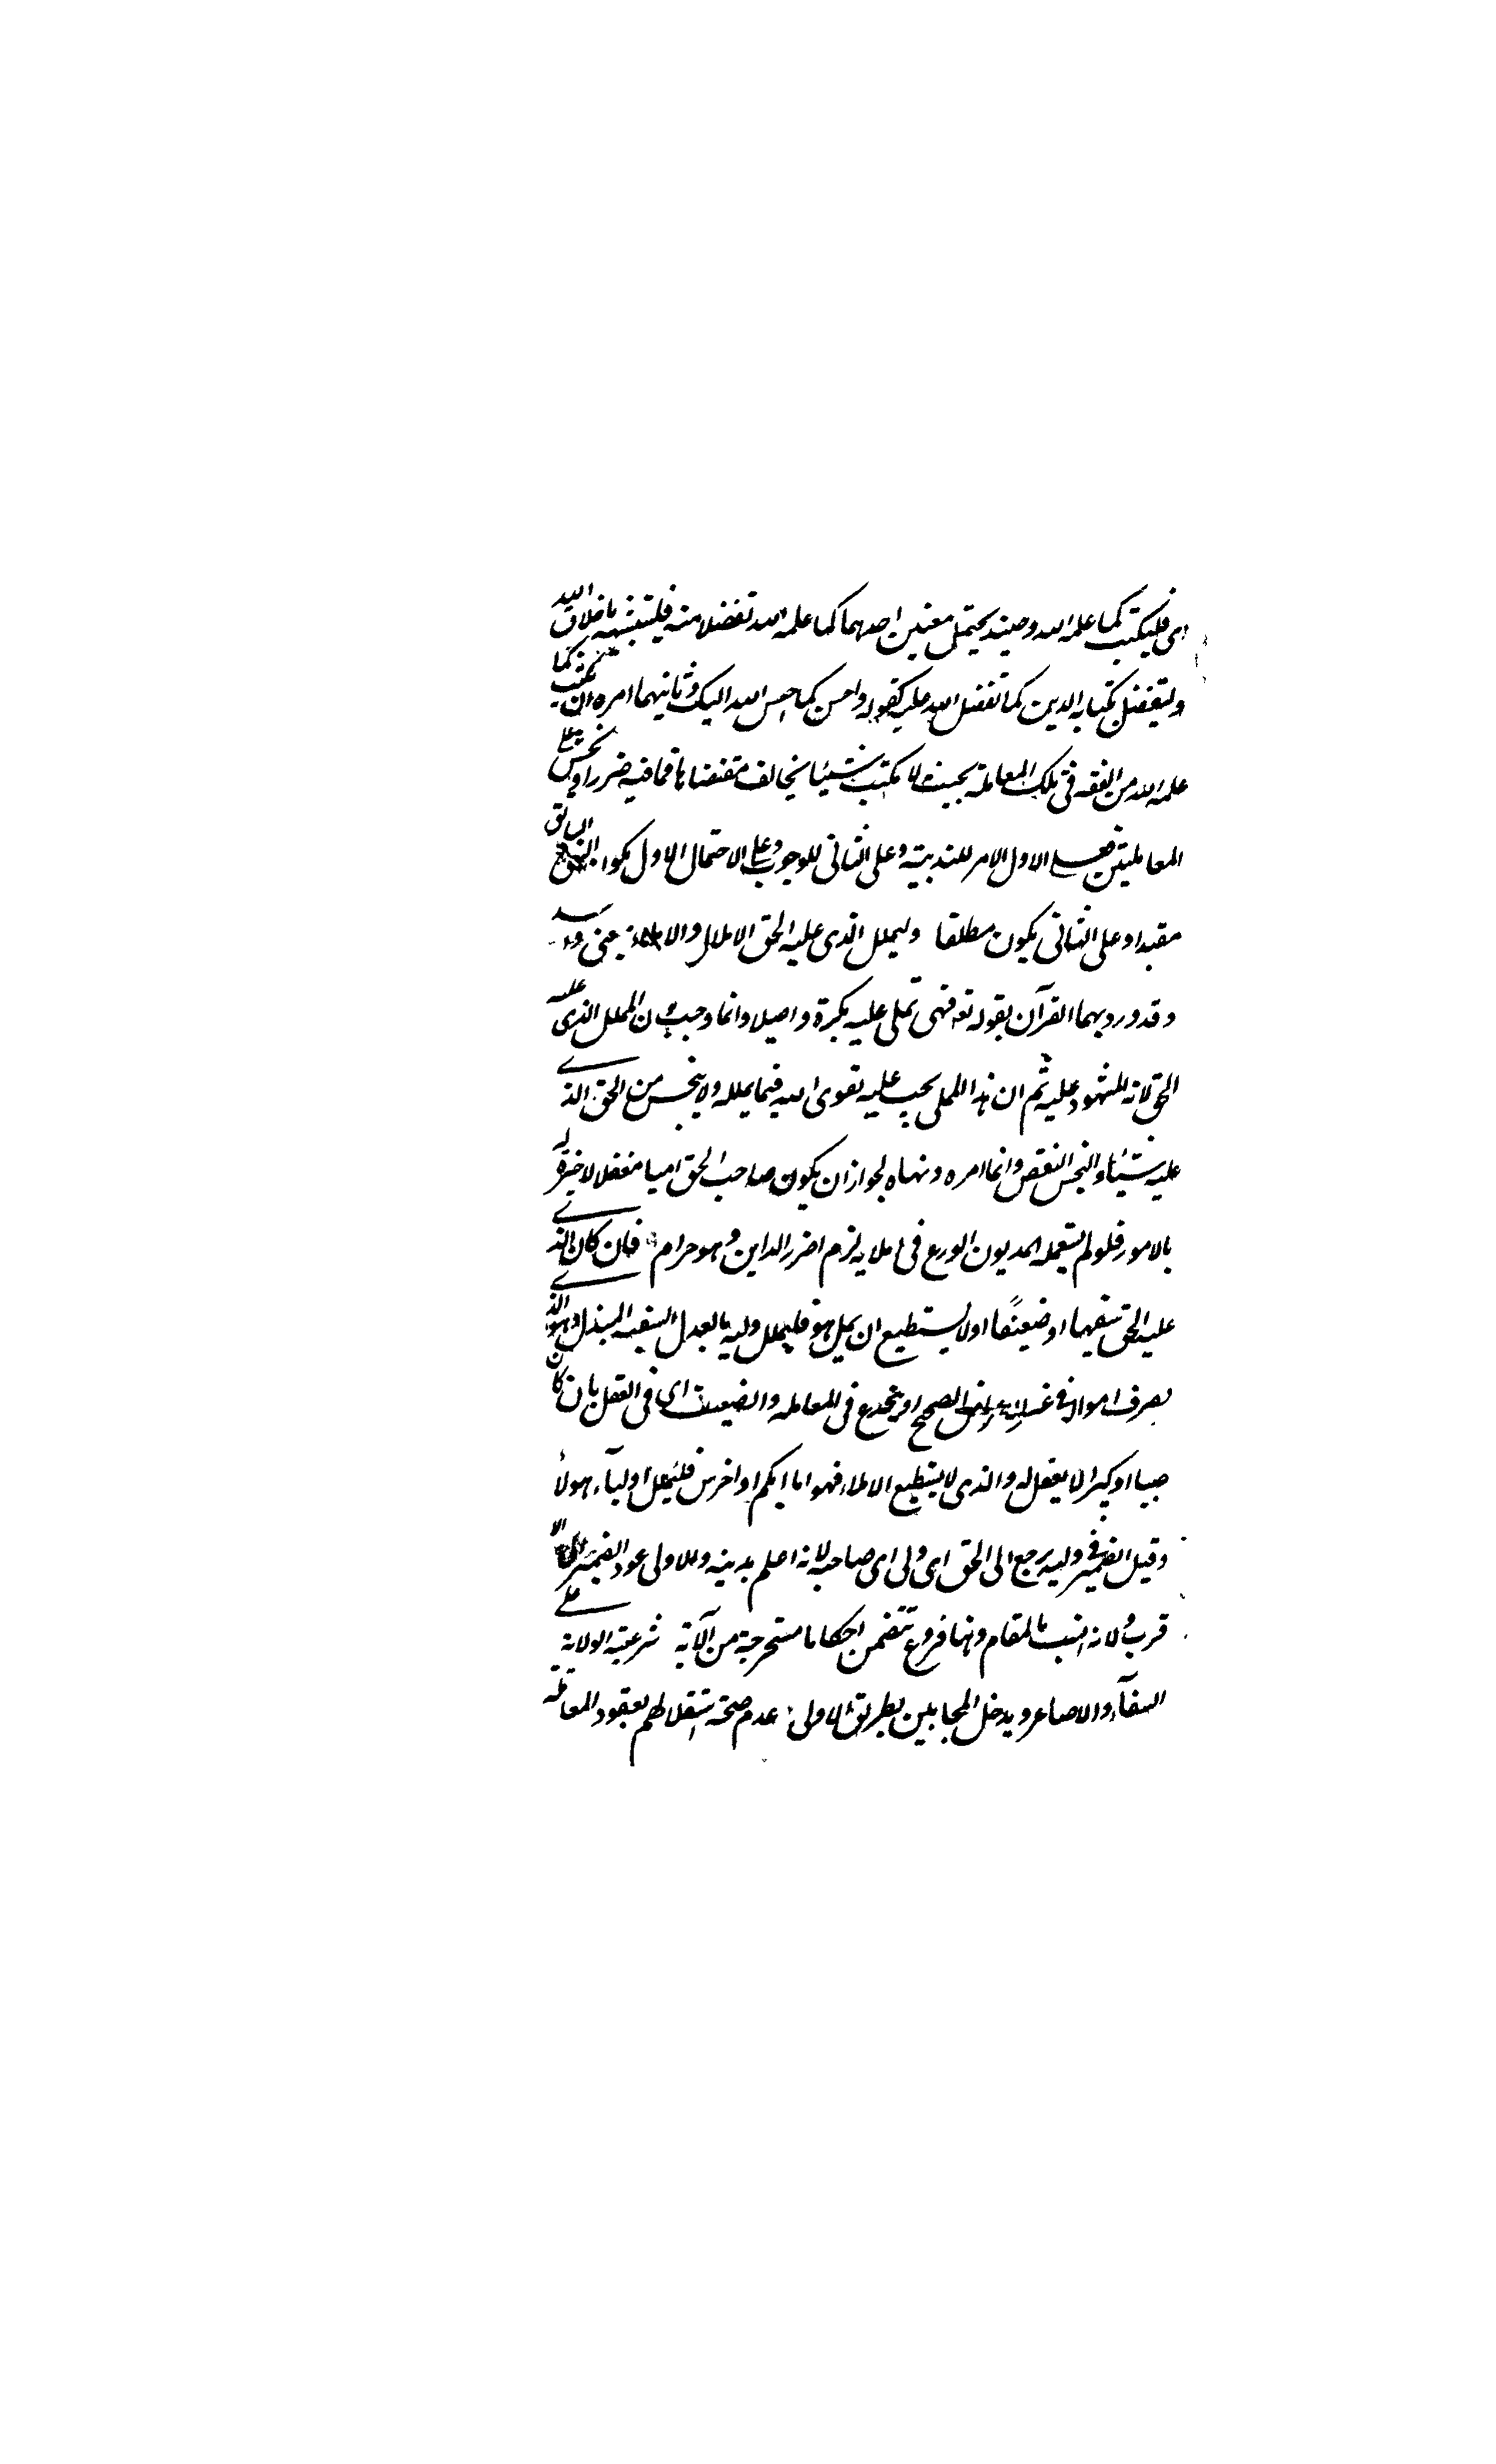 اى فليكتب كما علمه الله وحينئذ يحتمل معنيين احدهما كما علمه الله تفضلا منه فليتشبه باخلاق الله
وليتفضل بكتابه الدين كما تفضل الله عليه كقوله واحسن كما احسن الله اليك وثانيهما امره ان يكتب كما
علمه الله من الفقه فى تلك المعاملة بحيث لا يكتب شيئا يخالف مقتضاها فما فيه ضرر او بخس على
المعاملين فعلى الاول الامر للندبية وعلى الثانى للوجوب وعلى الاحتمال الاول يكون النهى السابق
مقيدا وعلى الثانى يكون مطلقا وليملل الذى عليه الحق الاملال والاملاء بمعنى واحد
وقد ورد بهما القرآن بقوله تع فهى تملى عليه بكرة واصيلا وانما وجب كون المملل الذى عليه
الحق لانه المشهود عليه ثم ان هذا المملى يجب عليه تقوى الله فيما يملله ولا يبخس من الحق الذى
عليه شيئا والبخس النقص وانما امره ونهاه لجواز ان يكون صاحب الحق اميا مغفلا لا خبرة له
بالامور فلو لم يستعمل المديون الورع فى املايه لزم اضرر الداين وهو حرام فان كان الذى
عليه الحق سفيها او ضعيفا او لا يستطيع ان يمل هو فليملل وليه بالعدل السفيه المبذل وهو الذى
يصرف امواله فى غير الاغراض الصحيح او ينخدع فى المعامله والضعيف اى فى العقل بان كان
صبيا او كبيرا لا يعقل له والذى لا يستطيع الاملاء فهو اما ابكم او اخرس فليملل اولياء هولاء
وقيل الضمير فى وليه يرجع الى الحق اى ولى اى صاحبه لانه اعلم بدينه والاولى عود الضمير الى الا
قرب ولانه انسب بالمقام وهنا فروع تتضمن احكاما مستخرجة من الآية شرعية الولاية على
السفهآء والاصاغر ويدخل المجانين بطريق الاولى عدم صحة استقلالهم بعقود المعاملة